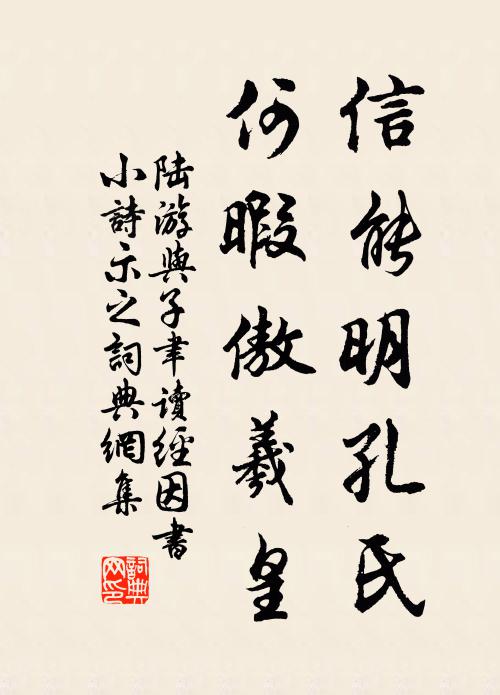 信能明孔氏
何暇傲羲皇
陆游與子聿讀經因書
小詩示之詞典網集
詞典
网印